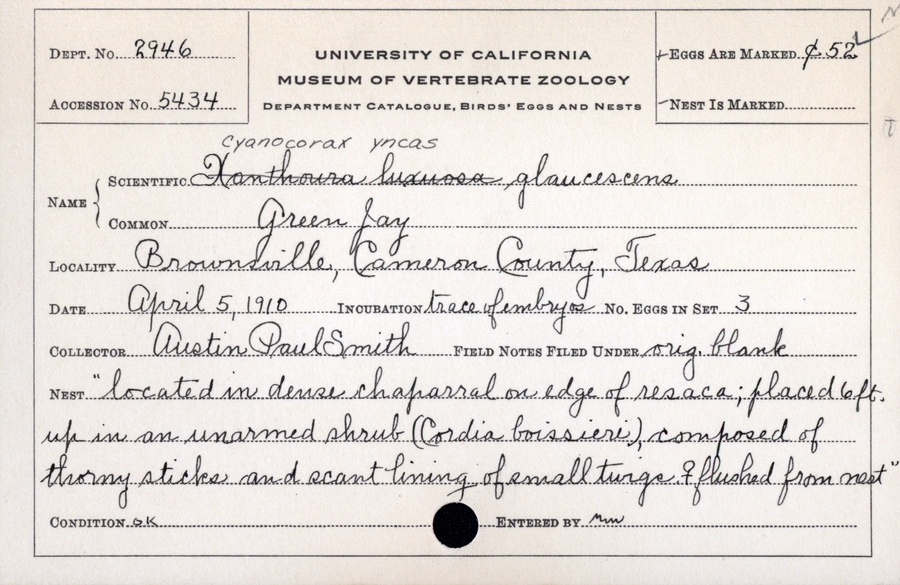 Dept. No. 2946
Accession No. 5434
UNIVERSITY OF CALIFORNIA
MUSEUM OF VERTEBRATE ZOOLOGY
Department Catalogue, Birds' Eggs and Nests
Eggs Are Marked ₵ 52
Nest Is Marked
Cyanocorax yncas
Name { Scientific Xanthoura luxuosa glaucescens
Common Green Jay
Locality Brownsville, Cameron County, Texas
Date April 5, 1910 Incubation trace of embryos No. Eggs in Set 3
Collector Austin Paul Smith Field Notes Filed Under orig. blank
Nest "located in dense chaparral on edge of resaca; placed 6 ft.
up in an unarmed shrub (Cordia boissieri), composed of
thorny sticks and scant lining of small twigs. ♀ flushed from nest"
Condition OK Entered by mw